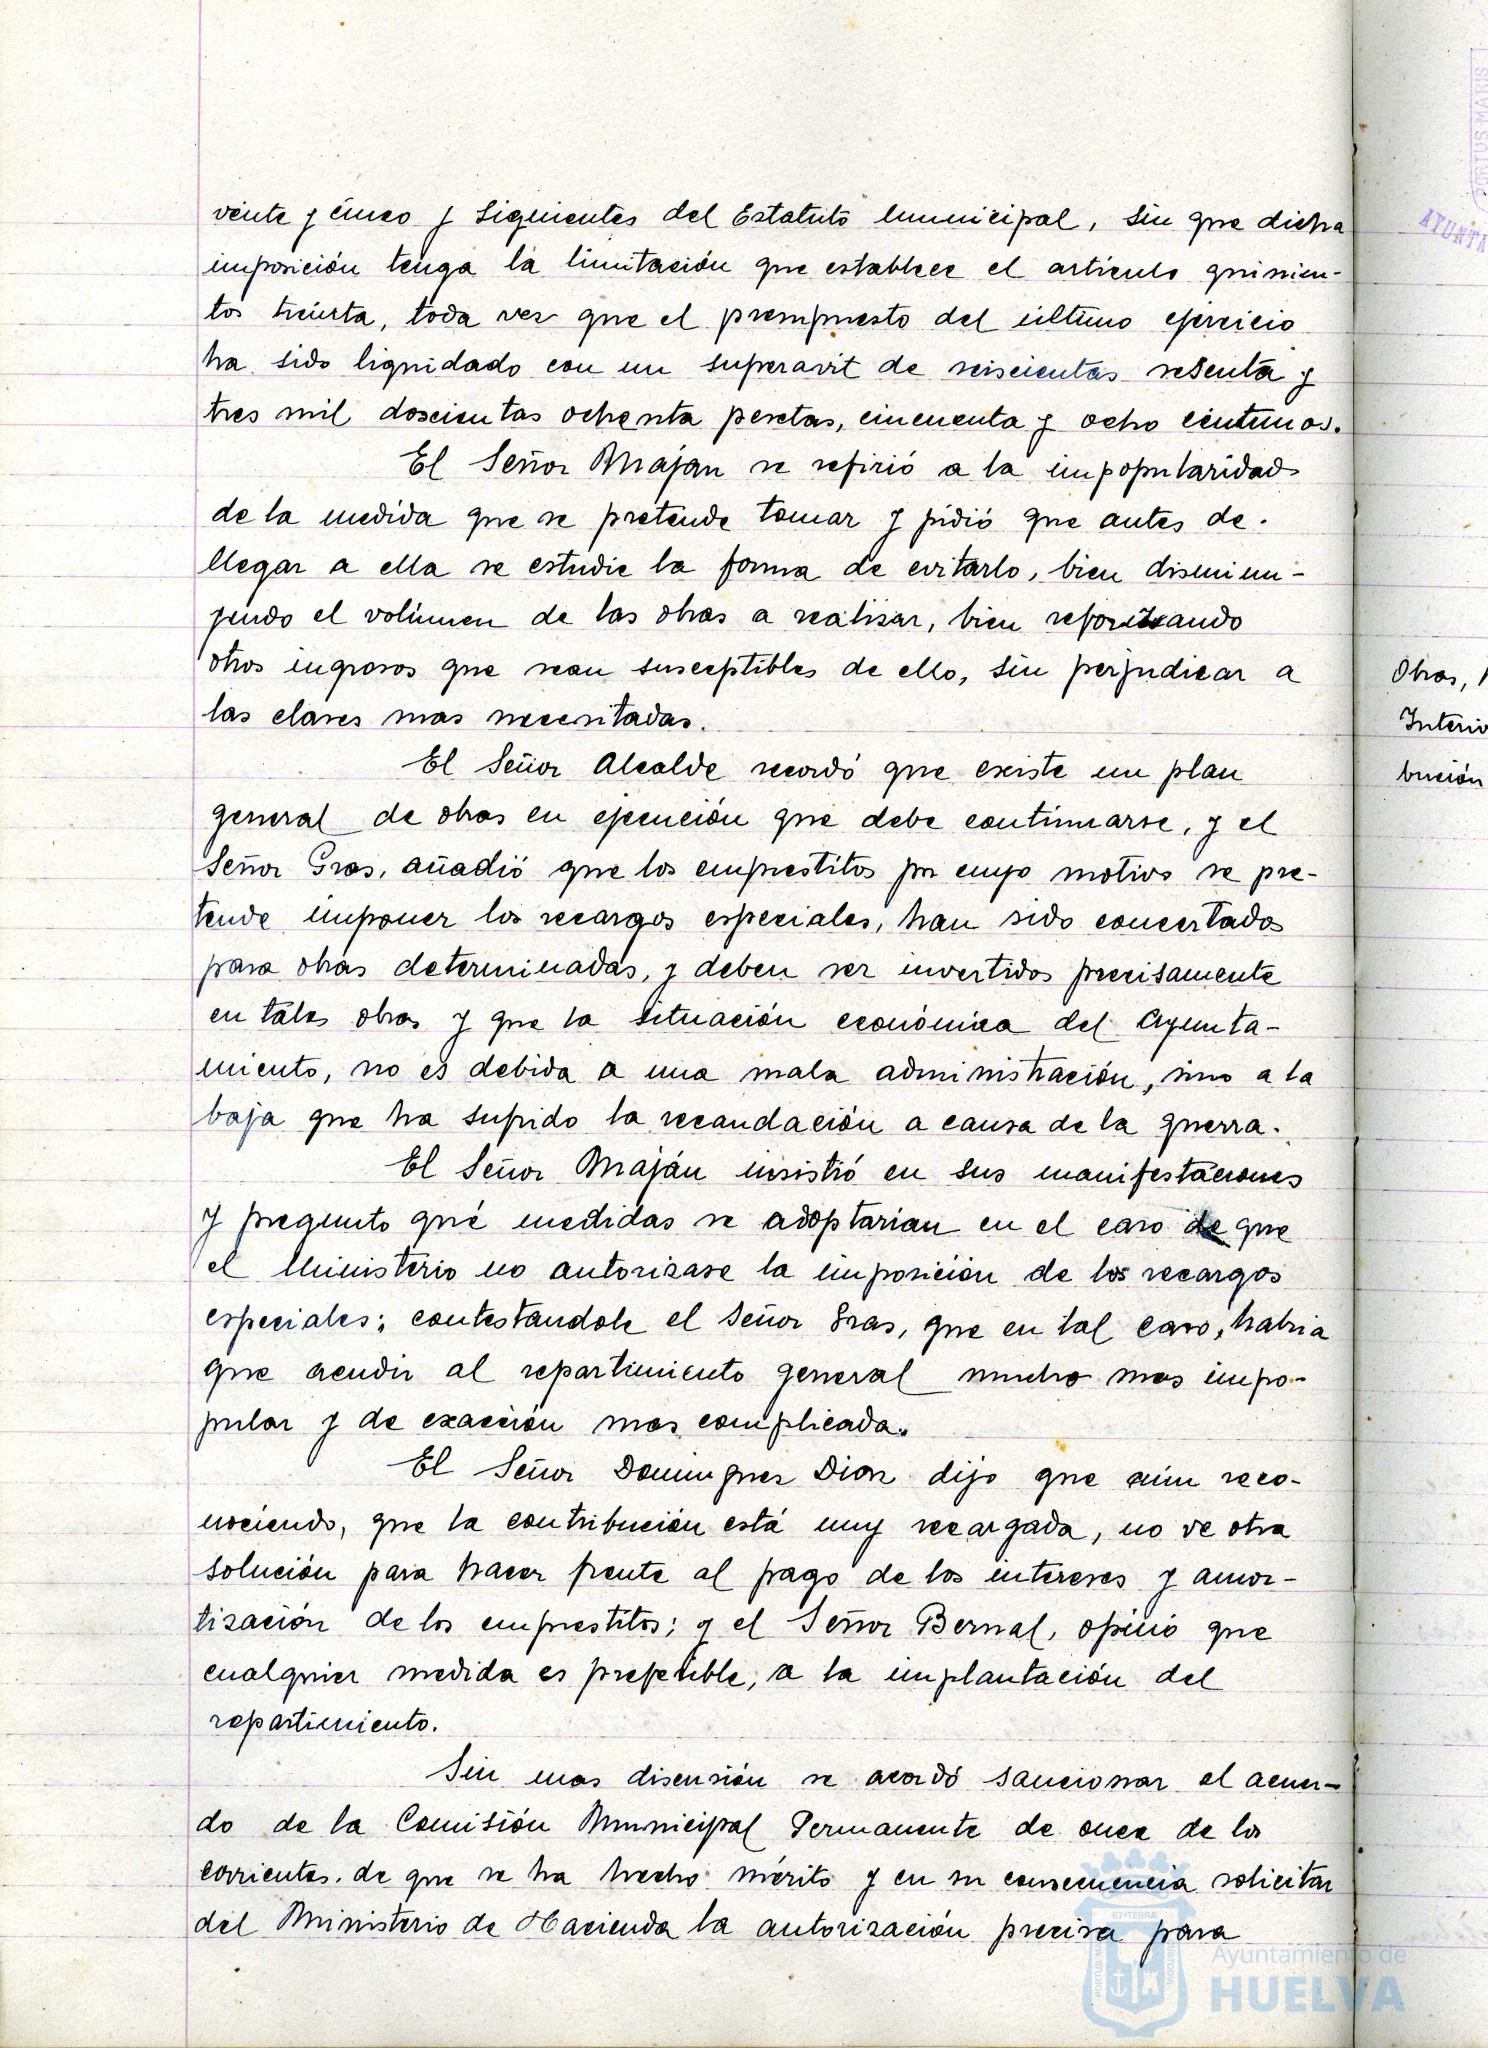 veinte y cinco y siguientes del Estatuto municipal, sin que dicha
imposición tenga la limitación que establece el artículo quinien-
tos treinta, toda vez que el presupuesto del último ejercicio
ha sido liquidado con un superavit de seiscientas sesenta y
tres mil doscientas ochenta pesetas, cincuenta y ocho céntimos.
El Señor Maján se refirió a la impopularidad
de la medida que se pretende tomar y pidió que antes de
llegar a ella se estudie la forma de evitarlo, bien disminu-
yendo el volúmen de las obras a realizar, bien reforzando
otros ingresos que sean susceptibles de ello, sin perjudicar a
las clases mas necesitadas.
El Señor Alcalde recordó que existe un plan
general de obras en ejecución que debe continuarse, y el
Señor Gras, añadió que los empréstitos por cuyo motivo se pre-
tende imponer los recargos especiales, han sido concertados
para obras determinadas, y deben ser invertidos precisamente
en tales obras y que la situación económica del Ayunta-
miento, no es debida a una mala administración, sino a la
baja que ha sufrido la recaudación a causa de la guerra.
El Señor Maján insistió en sus manifestaciones
y pregunto qué medidas se adoptarian en el caso de que
el Ministerio no autorizase la imposición de los recargos
especiales; contestandole el Señor Gras, que en tal caso, habria
que acudir al repartimiento general mucho mas impo-
pular y de exacción mas complicada.
El Señor Dominguez Diaz dijo que aún reco-
nociendo, que la contribución está muy recargada, no ve otra
solución para hacer frente al pago de los intereses y amor-
tización de los empréstitos; y el Señor Bernal, opinió que
cualquier medida es preferible, a la implantación del
repartimiento.
Sin mas discusión se acordó sancionar el acuer-
do de la Comisión Municipal Permanente de once de los
corrientes, de que se ha hecho mérito y en su consecuencia solicitar
del Ministerio de Hacienda la autorización precisa para
Obras,
Interio
bución
PORTUS MARIS
AYUNTA
Ayuntamiento de
HUELVA